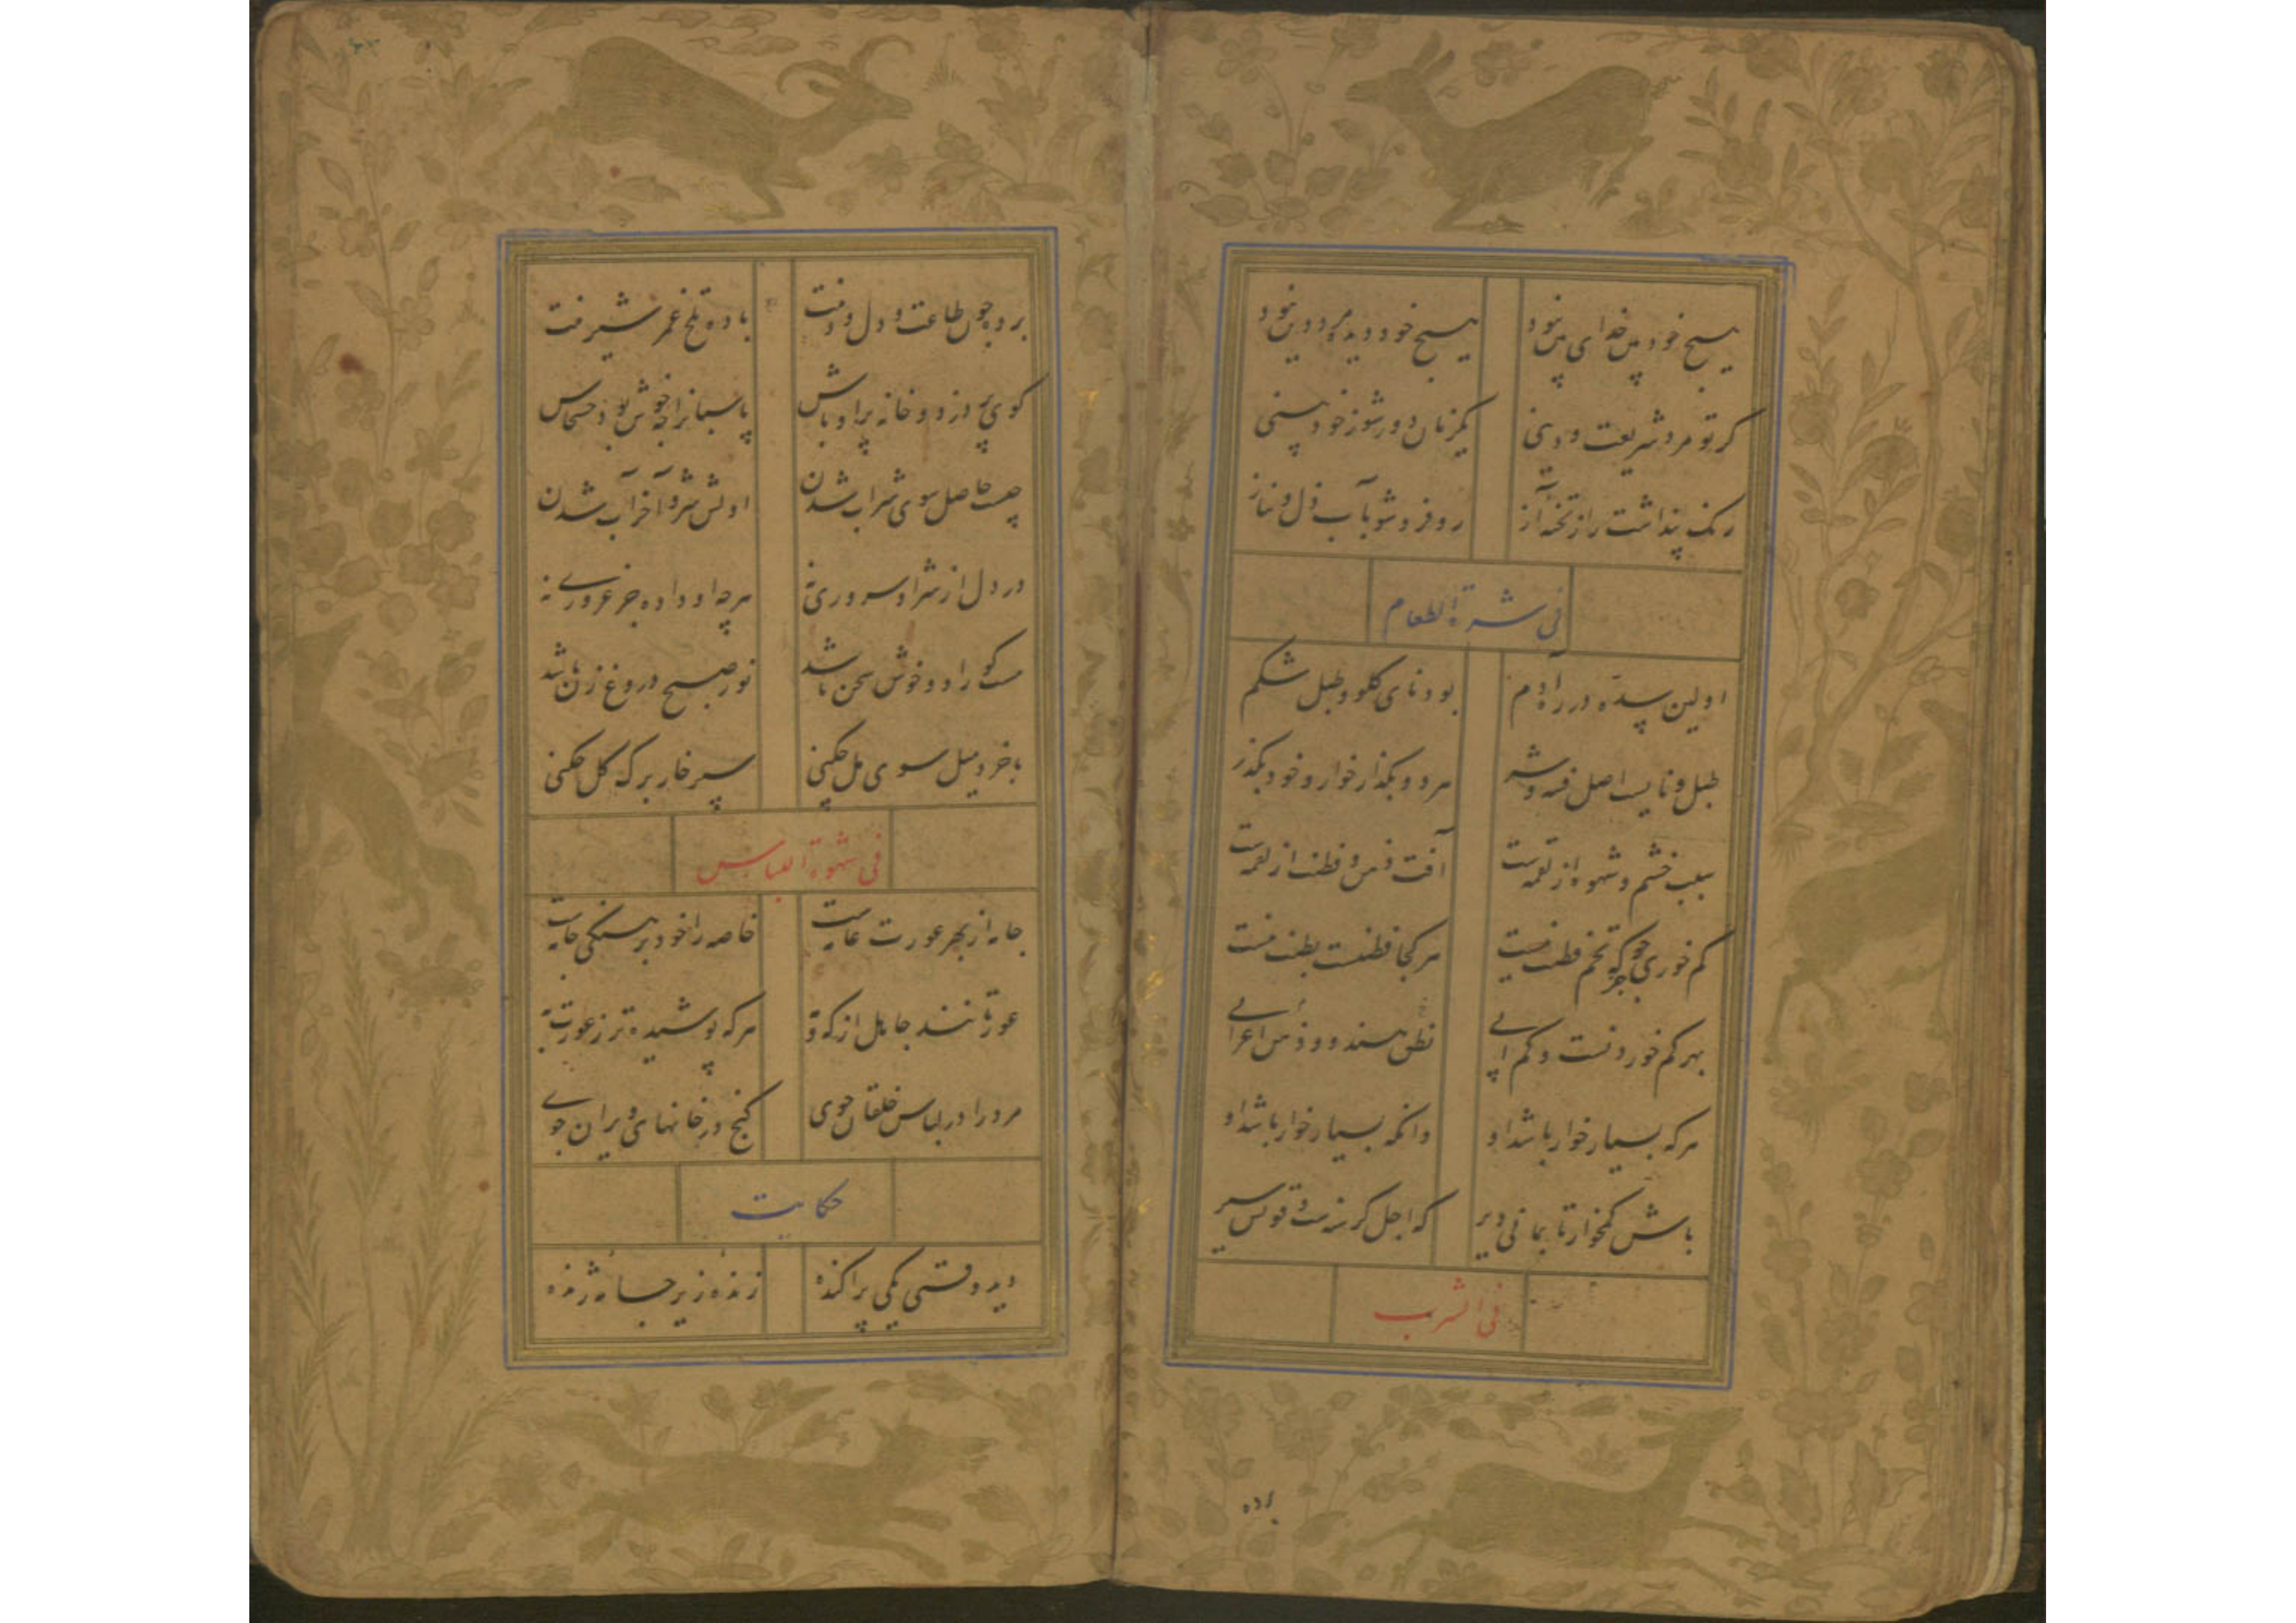 هیچ خودبین خدای بین نبود هیچ خود دیده مرد دین نبود
گر تو مرد شریعت و دینی یکزمان دور شو ز خودبینی
رنگ پنداشت را ز تخته آز رو فرو شو بآب ذل و نیاز
فی شره الطعام
اولین در راه آدم بود نای گلو و طبل شکم
طبل و نایست اصل فتنه و شر مرد و بگذار خوار و خود بگذر
سبب خشم و شهوه از لقمه است آفت ذهن و فطنت از لقمه است
کم خوری که تخم فطنت هر کجا فطنتست بطنت نیست
بهر کم خوردنست و کم آبی نطق هندو و ذهن اعرابی
هر که بسیار خوار باشد او دانکه بسیار خوار باشد او
باش کمخوار تا بمانی دیر که اجل گرسنه است و تو بس سیر
فی الشرب
برده
برده چون طاعت و دل و دینت باده تلخ عمر شیرینت
کوی پر دزد و خانه پر اوباش پاسبانرا چه خوش بود خشخاش
چیست حاصل سوی شراب شدن اولش شر و آخر آب شدن
در دل از شر او سروری نه هرچه او داده جز غروری نه
مست کو راد و خوش سخن باشد نور صبح دروغ زن باشد
با خرد میل سوی مل چکنی سپر خار برگ گل چکنی
فی شهوة اللباس
جامه از بهر عورت عامست خاصه را خود برهنگی جامه است
عورتانند جاهل از که و مه هر که پوشیده تر ز عورت به
مرد را در لباس خلقان جوی گنج در خانهای ویران جوی
حکایت
دید وقتی یکی پراکنده زنده زیر جامه ژنده